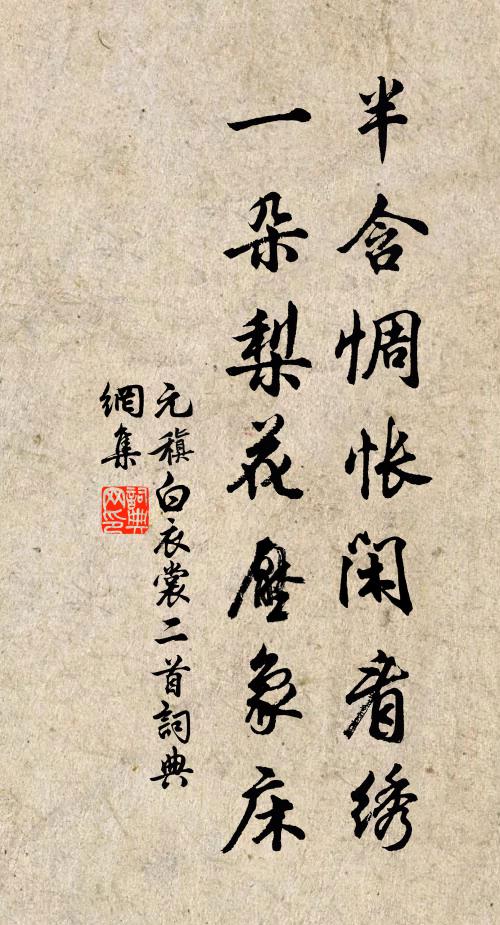 半含惆怅闲看绣
一朵梨花压象床
元稹白衣裳二首詞典
網集
詞典
网印